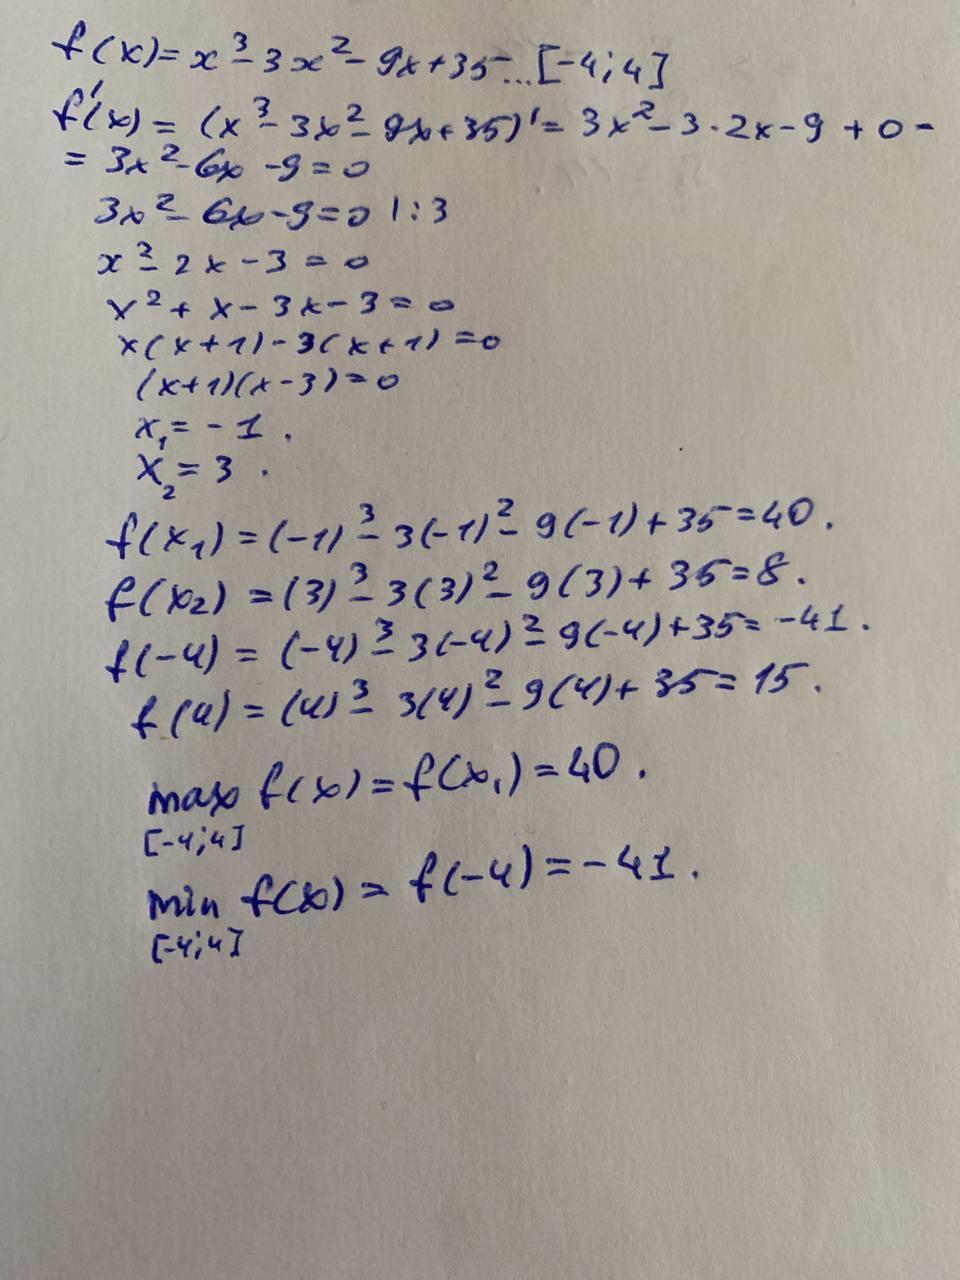 f(x)=x³-3x²-9x+35...[-4;4]
f'(x)=(x³-3x²-9x+35)'=3x²-3·2x-9+0-
=3x²-6x-9=0
3x²-6x-9=0 |:3
x²-2x-3=0
x²+x-3x-3=0
x(x+1)-3(x+1)=0
(x+1)(x-3)=0
x₁=-1.
x₂=3.
f(x₁)=(-1)³-3(-1)²-9(-1)+35=40.
f(x₂)=(3)³-3(3)²-9(3)+35=8.
f(-4)=(-4)³-3(-4)²-9(-4)+35=-41.
f(4)=(4)³-3(4)²-9(4)+35=15.
max f(x)=f(x₁)=40.
[-4;4]
min f(x)=f(-4)=-41.
[-4;4]